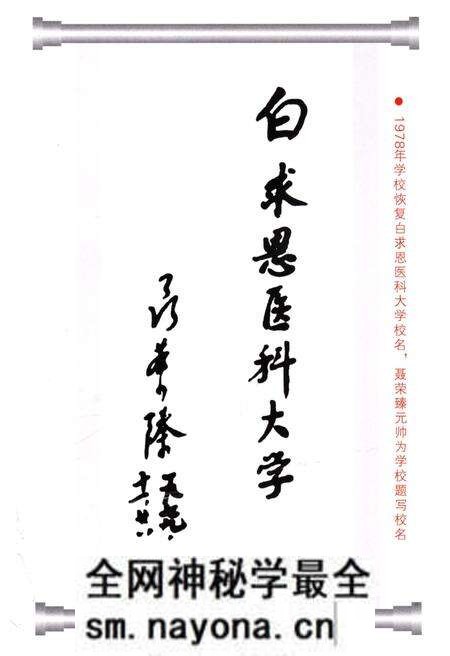 ●1978年学校恢复白求恩医科大学校名，聂荣臻元帅为学校题写校名
白求恩医科大学
聂荣臻
全网神秘学最全
sm.nayona.cn